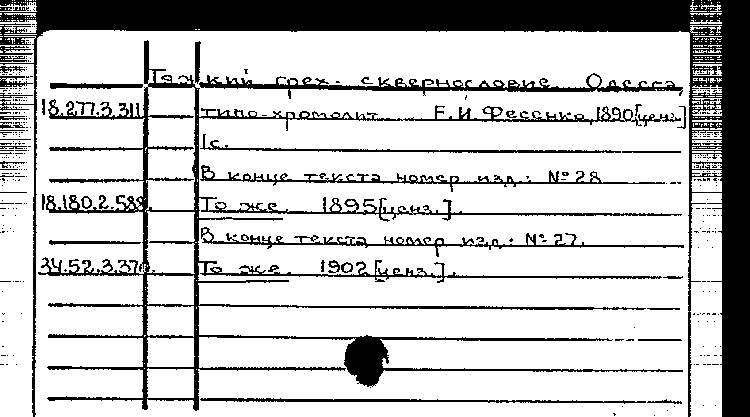 Тяжкий грех - сквернословие. Одесса,
18.277.3.311 типо-хромолит. Е.И.Фесенко, 1890[ценз.]
1с.
В конце текста номер изд.: №28
18.180.2.588. То же. 1895[ценз.].
В конце текста номер изд.: №27.
34.52.3.370. То же. 1902[ценз.].